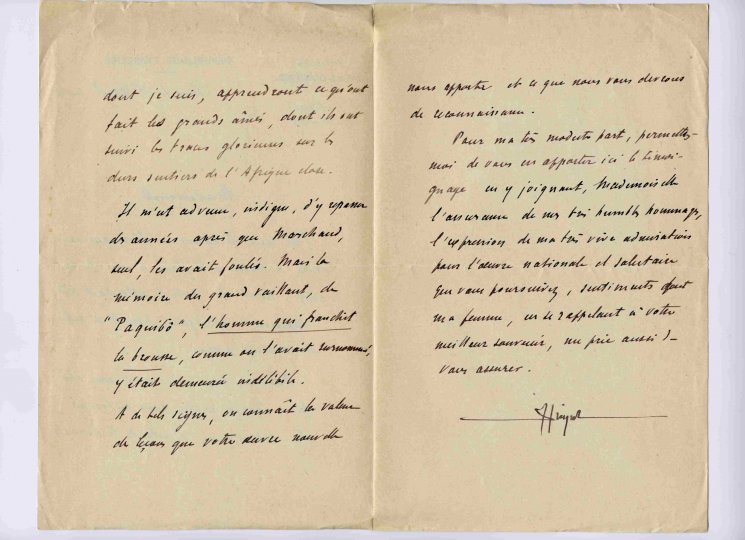 dont je suis, apprendront ce qu'ont
fait les grands aînés, dont ils ont
suivi les traces glorieuses sur les
durs sentiers de l'Afrique close.
Il m'est advenu, indigne, d'y repasser
des années après que Marchand,
seul, les avait foulés. Mais la
mémoire du grand vaillant, de
"Paquibô", l'homme qui franchit
la brousse, comme on l'avait surnommé,
y était demeurée indélébile.
A de tels signes, on connaît la valeur
de leçons que votre œuvre nouvelle
nous apporte et ce que nous vous devrons
de reconnaissance.
Pour ma très modeste part, permettez-
moi de vous en apporter ici le témoi-
gnage en y joignant, Mademoiselle
l'assurance de mes très humbles hommages,
l'expression de ma très vive admiration
pour l'œuvre nationale et salutaire
que vous poursuivez, sentiments dont
ma femme, en se rappelant à votre
meilleur souvenir, me prie aussi de
vous assurer.